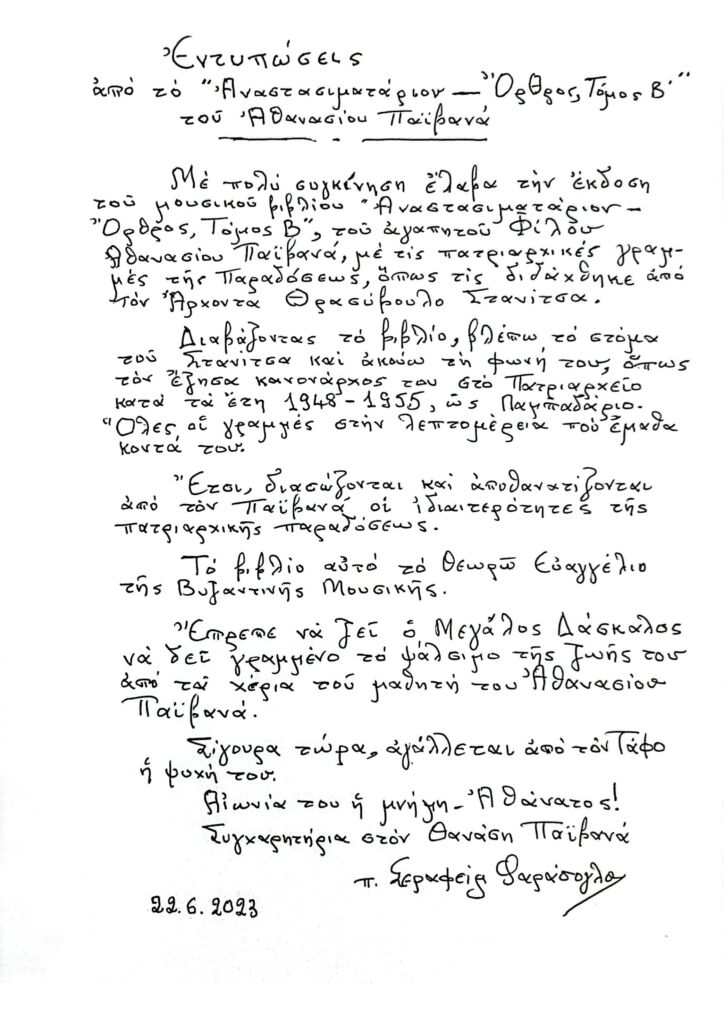 Ἐντυπώσεις
ἀπό τό "Ἀναστασιματάριον — Ὄρθρος, Τόμος Β΄"
τοῦ Ἀθανασίου Παϊβανᾶ
Μέ πολύ συγκίνηση ἔλαβα τήν ἔκδοση
τοῦ μουσικοῦ βιβλίου "Ἀναστασιματάριον –
Ὄρθρος, Τόμος Β", τοῦ ἀγαπητοῦ Φίλου
Ἀθανασίου Παϊβανά, μέ τίς πατριαρχικές γραμ-
μές τῆς Παραδόσεως, ὅπως τίς διδάχθηκε ἀπό
τόν Ἄρχοντα Θρασύβουλο Στανίτσα.
Διαβάζοντας τό βιβλίο, βλέπω τό στόμα
τοῦ Στανίτσα καί ἀκούω τή φωνή του, ὅπως
τόν ἔζησα κανονάρχος του στό Πατριαρχεῖο
κατά τά ἔτη 1948 - 1955, ὡς Λαμπαδάριο.
Ὅλες οἱ γραμμές στήν λεπτομέρεια πού ἔμαθα
κοντά του.
Ἔτσι, διασώζονται καί ἀποθανατίζονται
ἀπό τόν Παϊβανά οἱ ἰδιαιτερότητες τῆς
πατριαρχικῆς παραδόσεως.
Τό βιβλίο αὐτό τό θεωρῶ Εὐαγγέλιο
τῆς Βυζαντινῆς Μουσικῆς.
Ἔπρεπε νά ζεῖ ὁ Μεγάλος Δάσκαλος
νά δεῖ γραμμένο τό ψάλσιμο τῆς ζωῆς του
ἀπό τά χέρια τοῦ μαθητή του Ἀθανασίου
Παϊβανά.
Σίγουρα τώρα, ἀγάλλεται ἀπό τόν Τάφο
ἡ ψυχή του.
Αἰωνία του ἡ μνήμη - Ἀθάνατος!
Συγχαρητήρια στόν Θανάση Παϊβανά
π. Σεραφείμ Φαράσογλου
22.6.2023